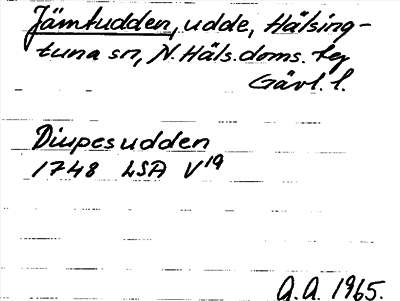 Jämtudden, udde, Hälsing-
tuna sn, N. Häls. doms. tg
Gävl. l.
Diupesudden
1748 LSA V19
A.A. 1965.